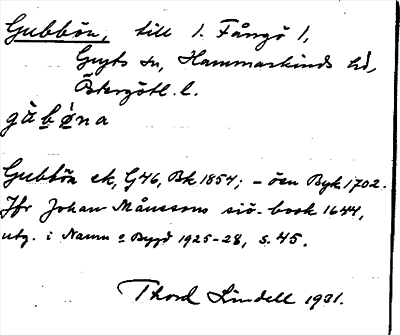 Gubbön, till 1. Fångö 1,
Gryts sn, Hammarkinds hd,
Östergötl. l.
gùbǿna
Gubbön ek, G46, Bk 1854; – ösn Byk 1702.
Jfr Johan Månssons siö-book 1644,
utg. i Namn o Bygd 1925-28, s. 45.
Thord Lindell 1931.